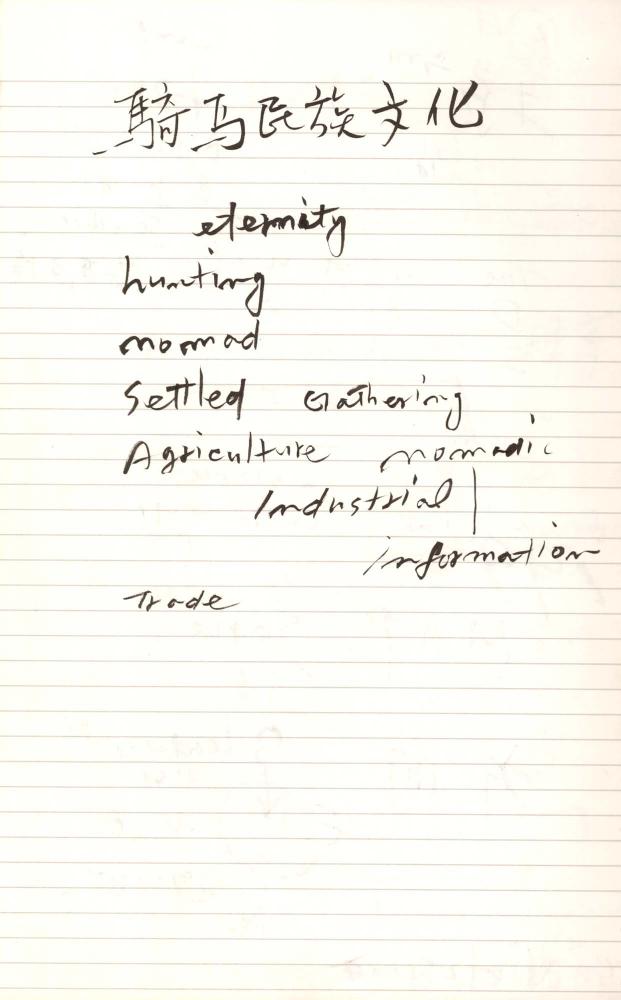 騎馬民族文化
eternity
hunting
nomad
Settled Gathering
Agriculture nomadic
Industrial
information
Trade